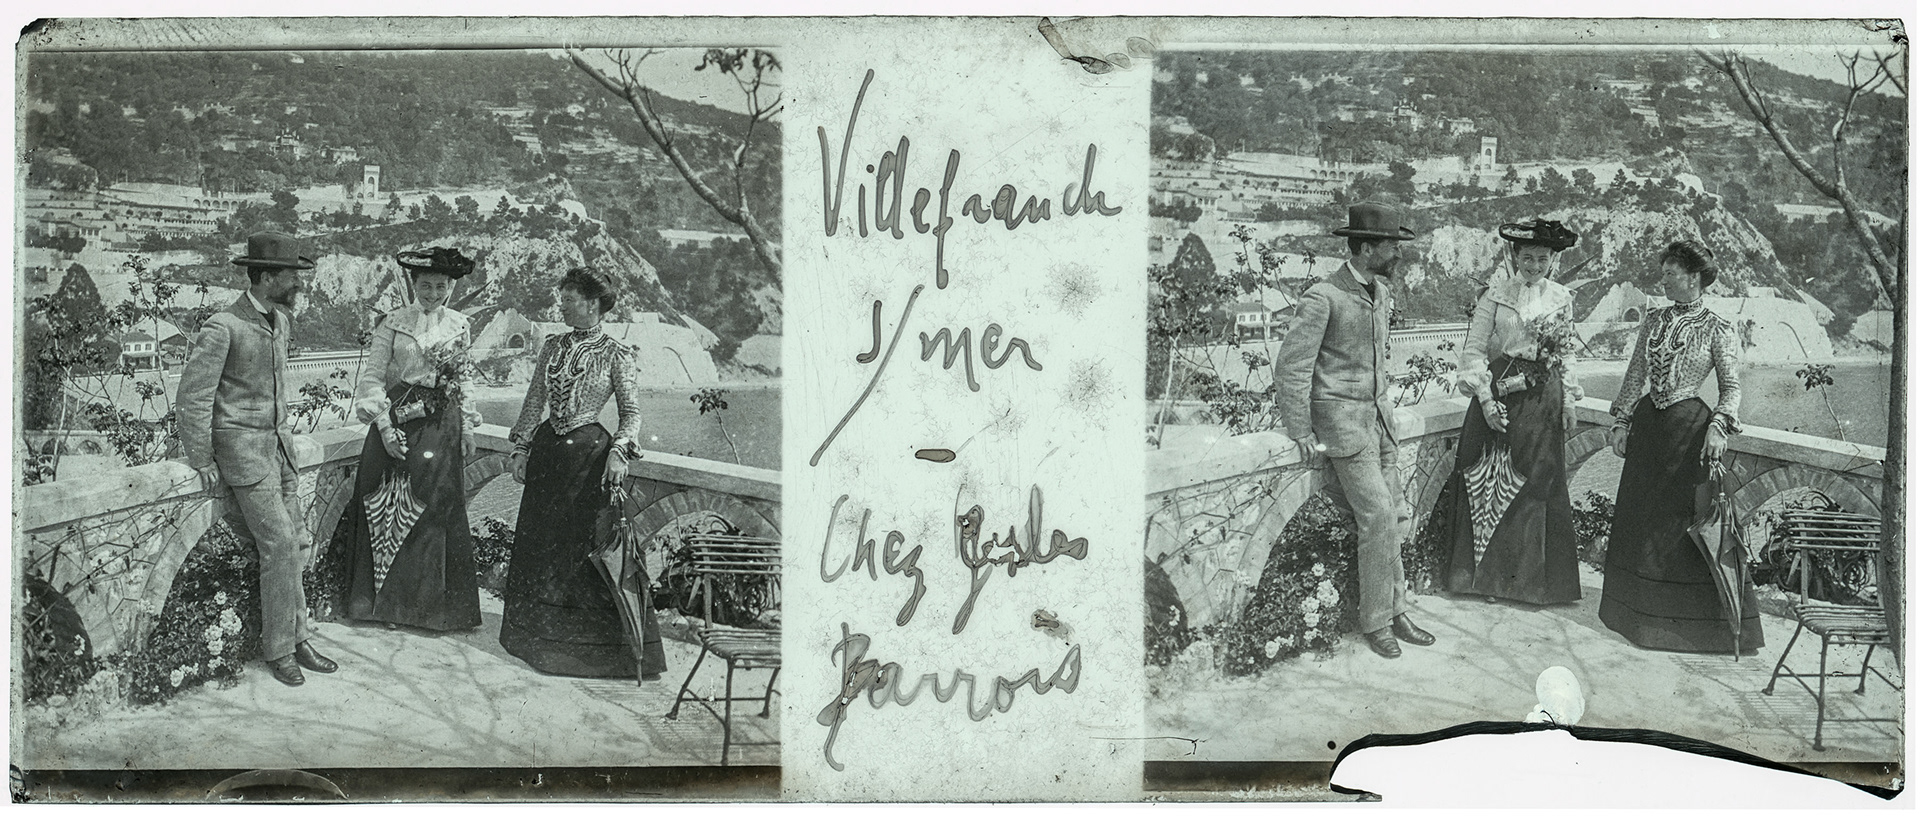 Villefranche
s/mer
-
Chez Jules
Barrois